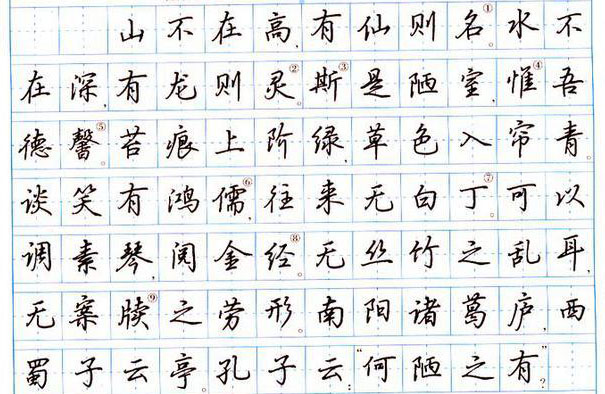 山不在高,有仙则名①。水不
在深,有龙则灵②。斯③是陋室,惟④吾
德馨⑤。苔痕上阶绿,草色入帘青。
谈笑有鸿儒⑥,往来无白丁⑦。可以
调素琴,阅金经⑧。无丝竹之乱耳,
无案牍⑨之劳形。南阳诸葛庐,西
蜀子云亭。孔子云:“何陋之有?”